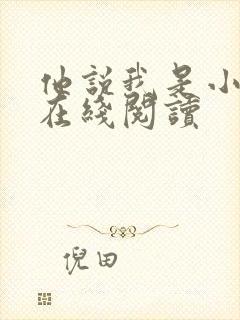 他說我是小
在綫閱讀
倪田